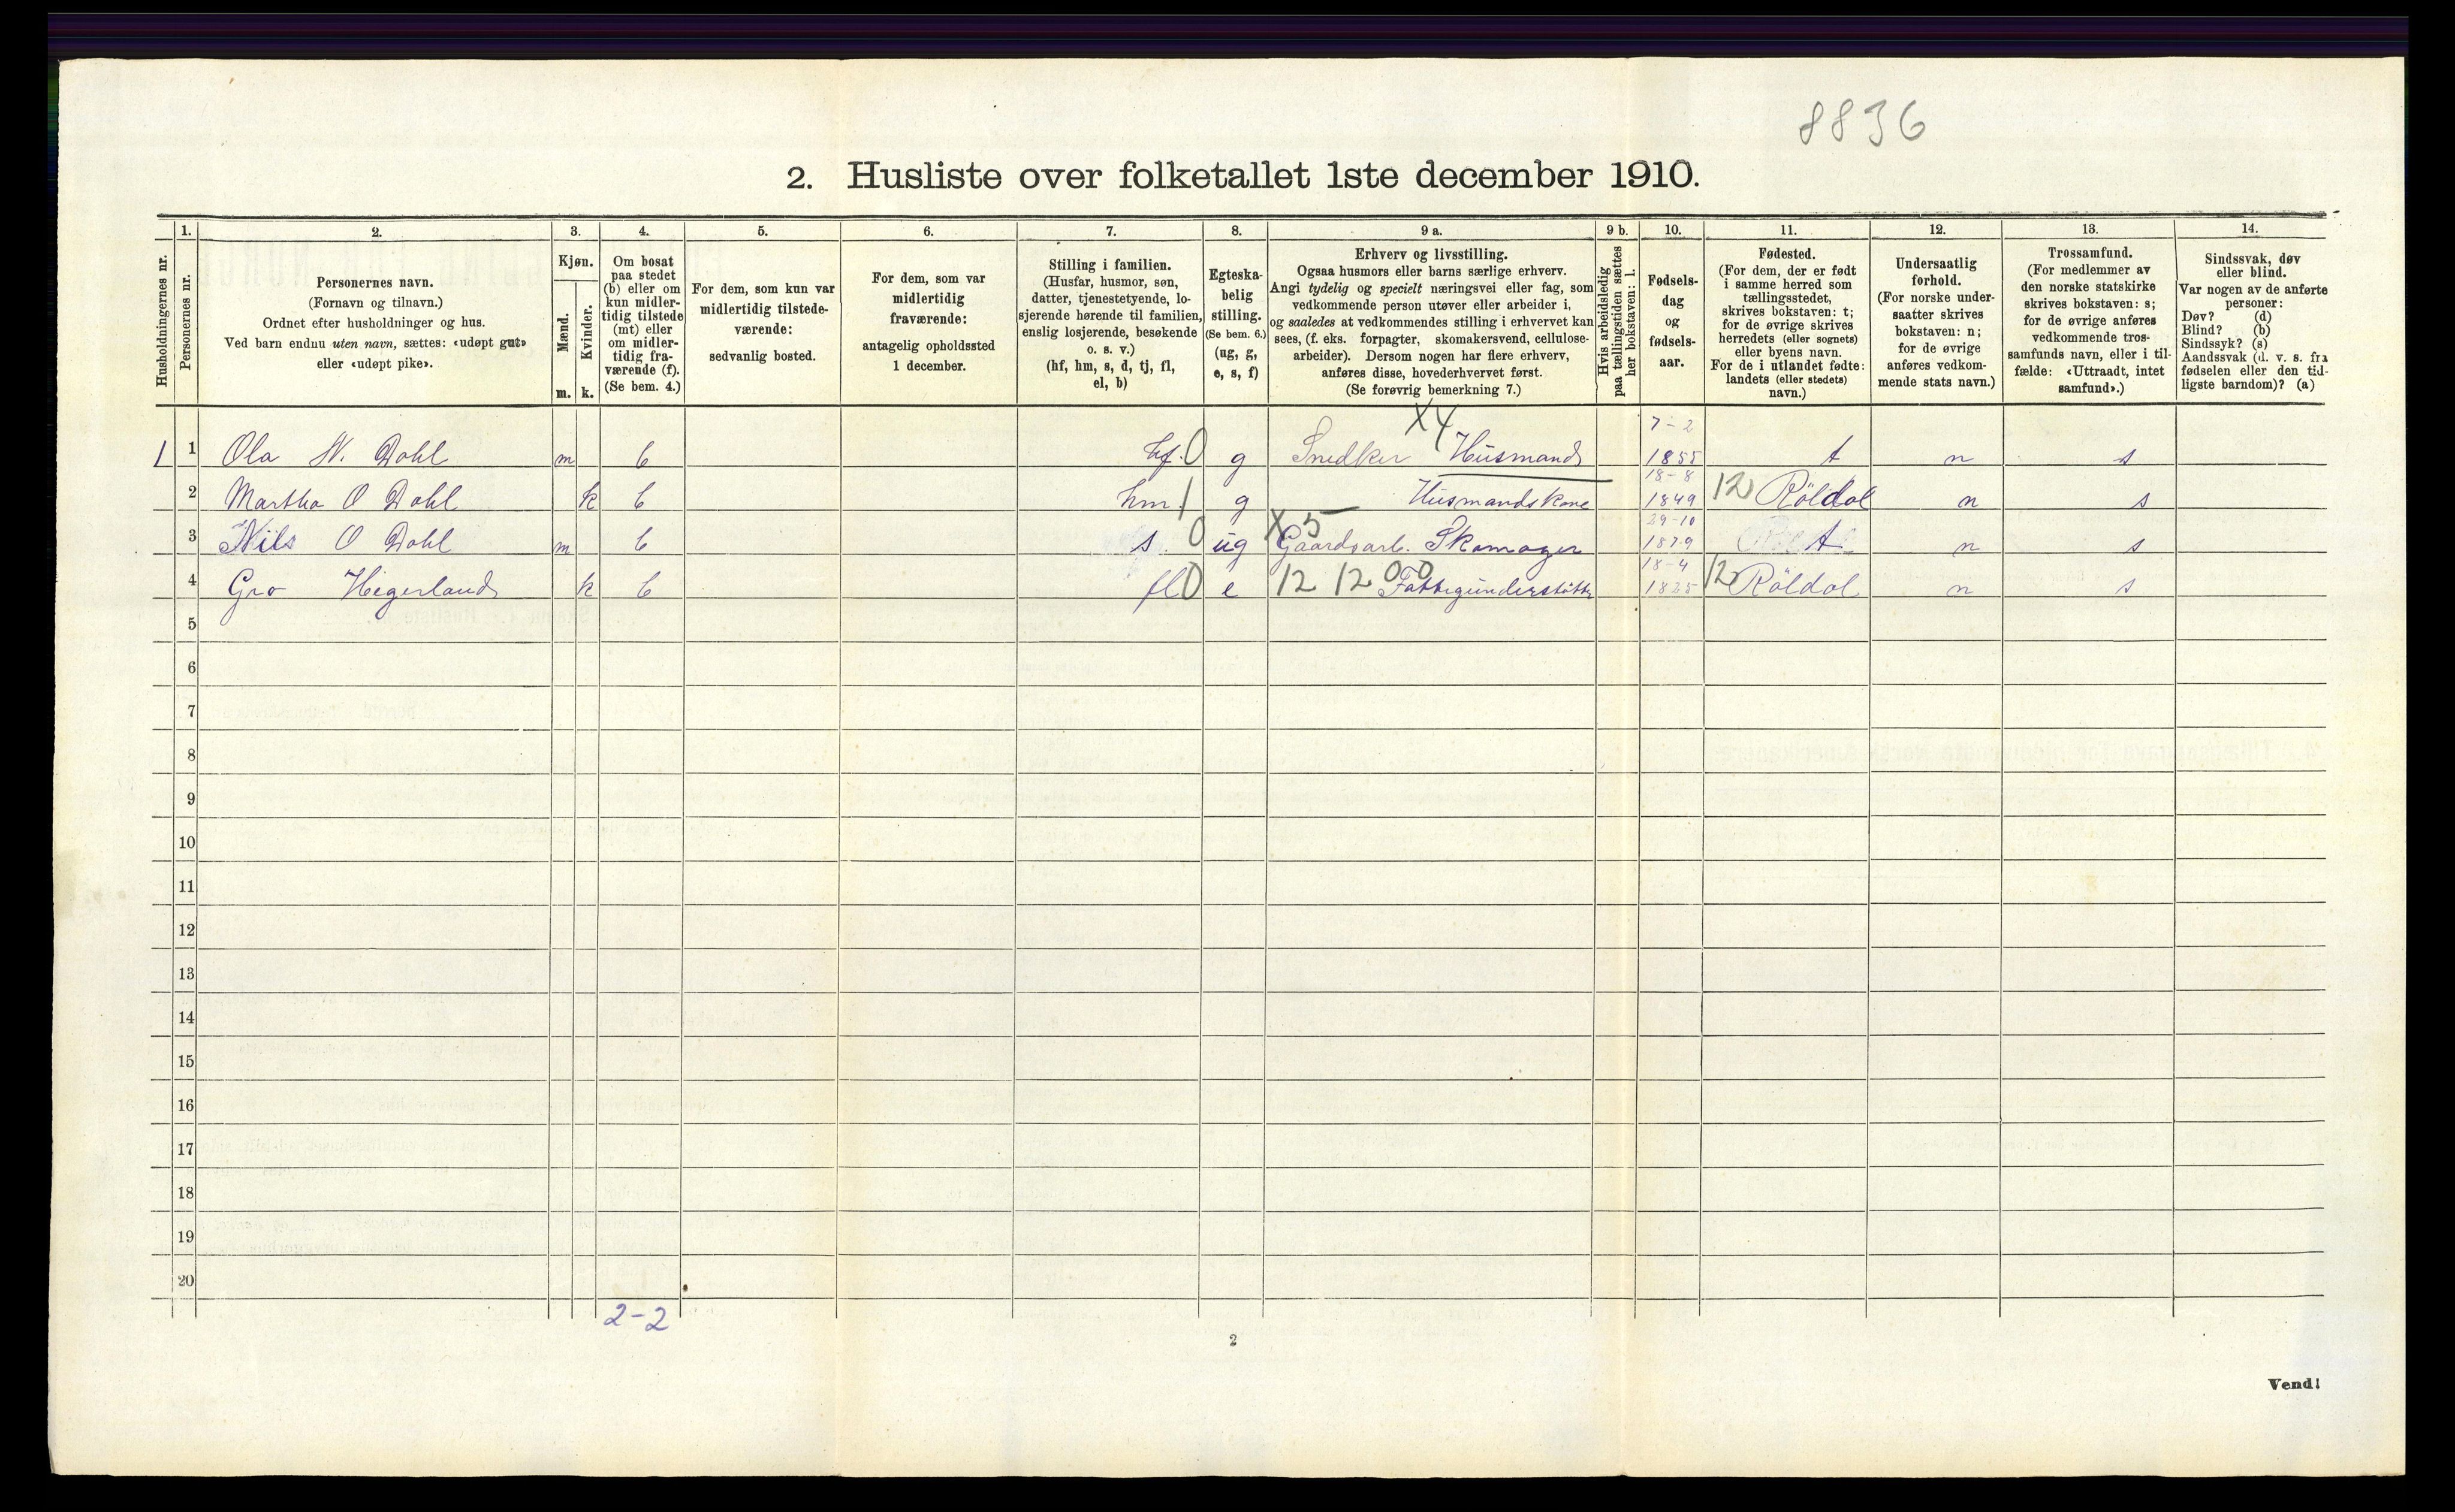 8836
2. Husliste over folketallet 1ste december 1910.
Husholdningernes nr.
1.
Personernes nr.
2.
Personernes navn.
(Fornavn og tilnavn.)
Ordnet efter husholdninger og hus.
Ved barn endnu uten navn, sættes: «udøpt gut»
eller «udøpt pike».
3.
Kjøn.
Mænd.
Kvinder.
m. k.
4.
Om bosat
paa stedet
(b) eller om
kun midler-
tidig tilstede
(mt) eller
om midler-
tidig fra-
værende (f).
(Se bem. 4.)
5.
For dem, som kun var
midlertidig tilstede-
værende:
sedvanlig bosted.
6.
For dem, som var
midlertidig
fraværende:
antagelig opholdssted
1 december.
7.
Stilling i familien.
(Husfar, husmor, søn,
datter, tjenestetyende, lo-
sjerende hørende til familien,
enslig losjerende, besøkende
o. s. v.)
(hf, hm, s, d, tj, fl,
el, b)
8.
Egteska-
belig
stilling.
(Se bem. 6.)
(ug, g,
e, s, f)
9 a.
Erhverv og livsstilling.
Ogsaa husmors eller barns særlige erhverv.
Angi tydelig og specielt næringsvei eller fag, som
vedkommende person utøver eller arbeider i,
og saaledes at vedkommendes stilling i erhvervet kan
sees, (f. eks. forpagter, skomakersvend, cellulose-
arbeider). Dersom nogen har flere erhverv,
anføres disse, hovederhvervet først.
(Se forøvrig bemerkning 7.)
9 b.
Hvis arbeidsledig
paa tællingstiden sættes
her bokstaven: l.
10.
Fødsels-
dag
og
fødsels-
aar.
11.
Fødested.
(For dem, der er født
i samme herred som
tællingsstedet,
skrives bokstaven: t;
for de øvrige skrives
herredets (eller sognets)
eller byens navn.
For de i utlandet fødte:
landets (eller stedets)
navn.)
12.
Undersaatlig
forhold.
(For norske under-
saatter skrives
bokstaven: n;
for de øvrige
anføres vedkom-
mende stats navn.)
13.
Trossamfund.
(For medlemmer av
den norske statskirke
skrives bokstaven: s;
for de øvrige anføres
vedkommende tros-
samfunds navn, eller i til-
fælde: «Uttraadt, intet
samfund».)
14.
Sindssvak, døv
eller blind.
Var nogen av de anførte
personer:
Døv? (d)
Blind? (b)
Sindssyk? (s)
Aandssvak (d. v. s. fra
fødselen eller den tid-
ligste barndom)? (a)
1 1 Ola N. Dahl m b hf. 0 g Snedker Husmand X4 7-2 1855 t n s
2 Martha O Dahl k b hm 1 g Husmandskone 18-8 1849 12 Röldal n s
3 Nils O Dahl m b s. 0 ug X 5 Gaardsarb. Skomager 29-10 1879 t n s
4 Gro Hegerland k b fl 0 e 12 12 00 Fattigunderstøtte 18-4 1825 12 Röldal n s
5
6
7
8
9
10
11
12
13
14
15
16
17
18
19
20
2-2
2
Vend!